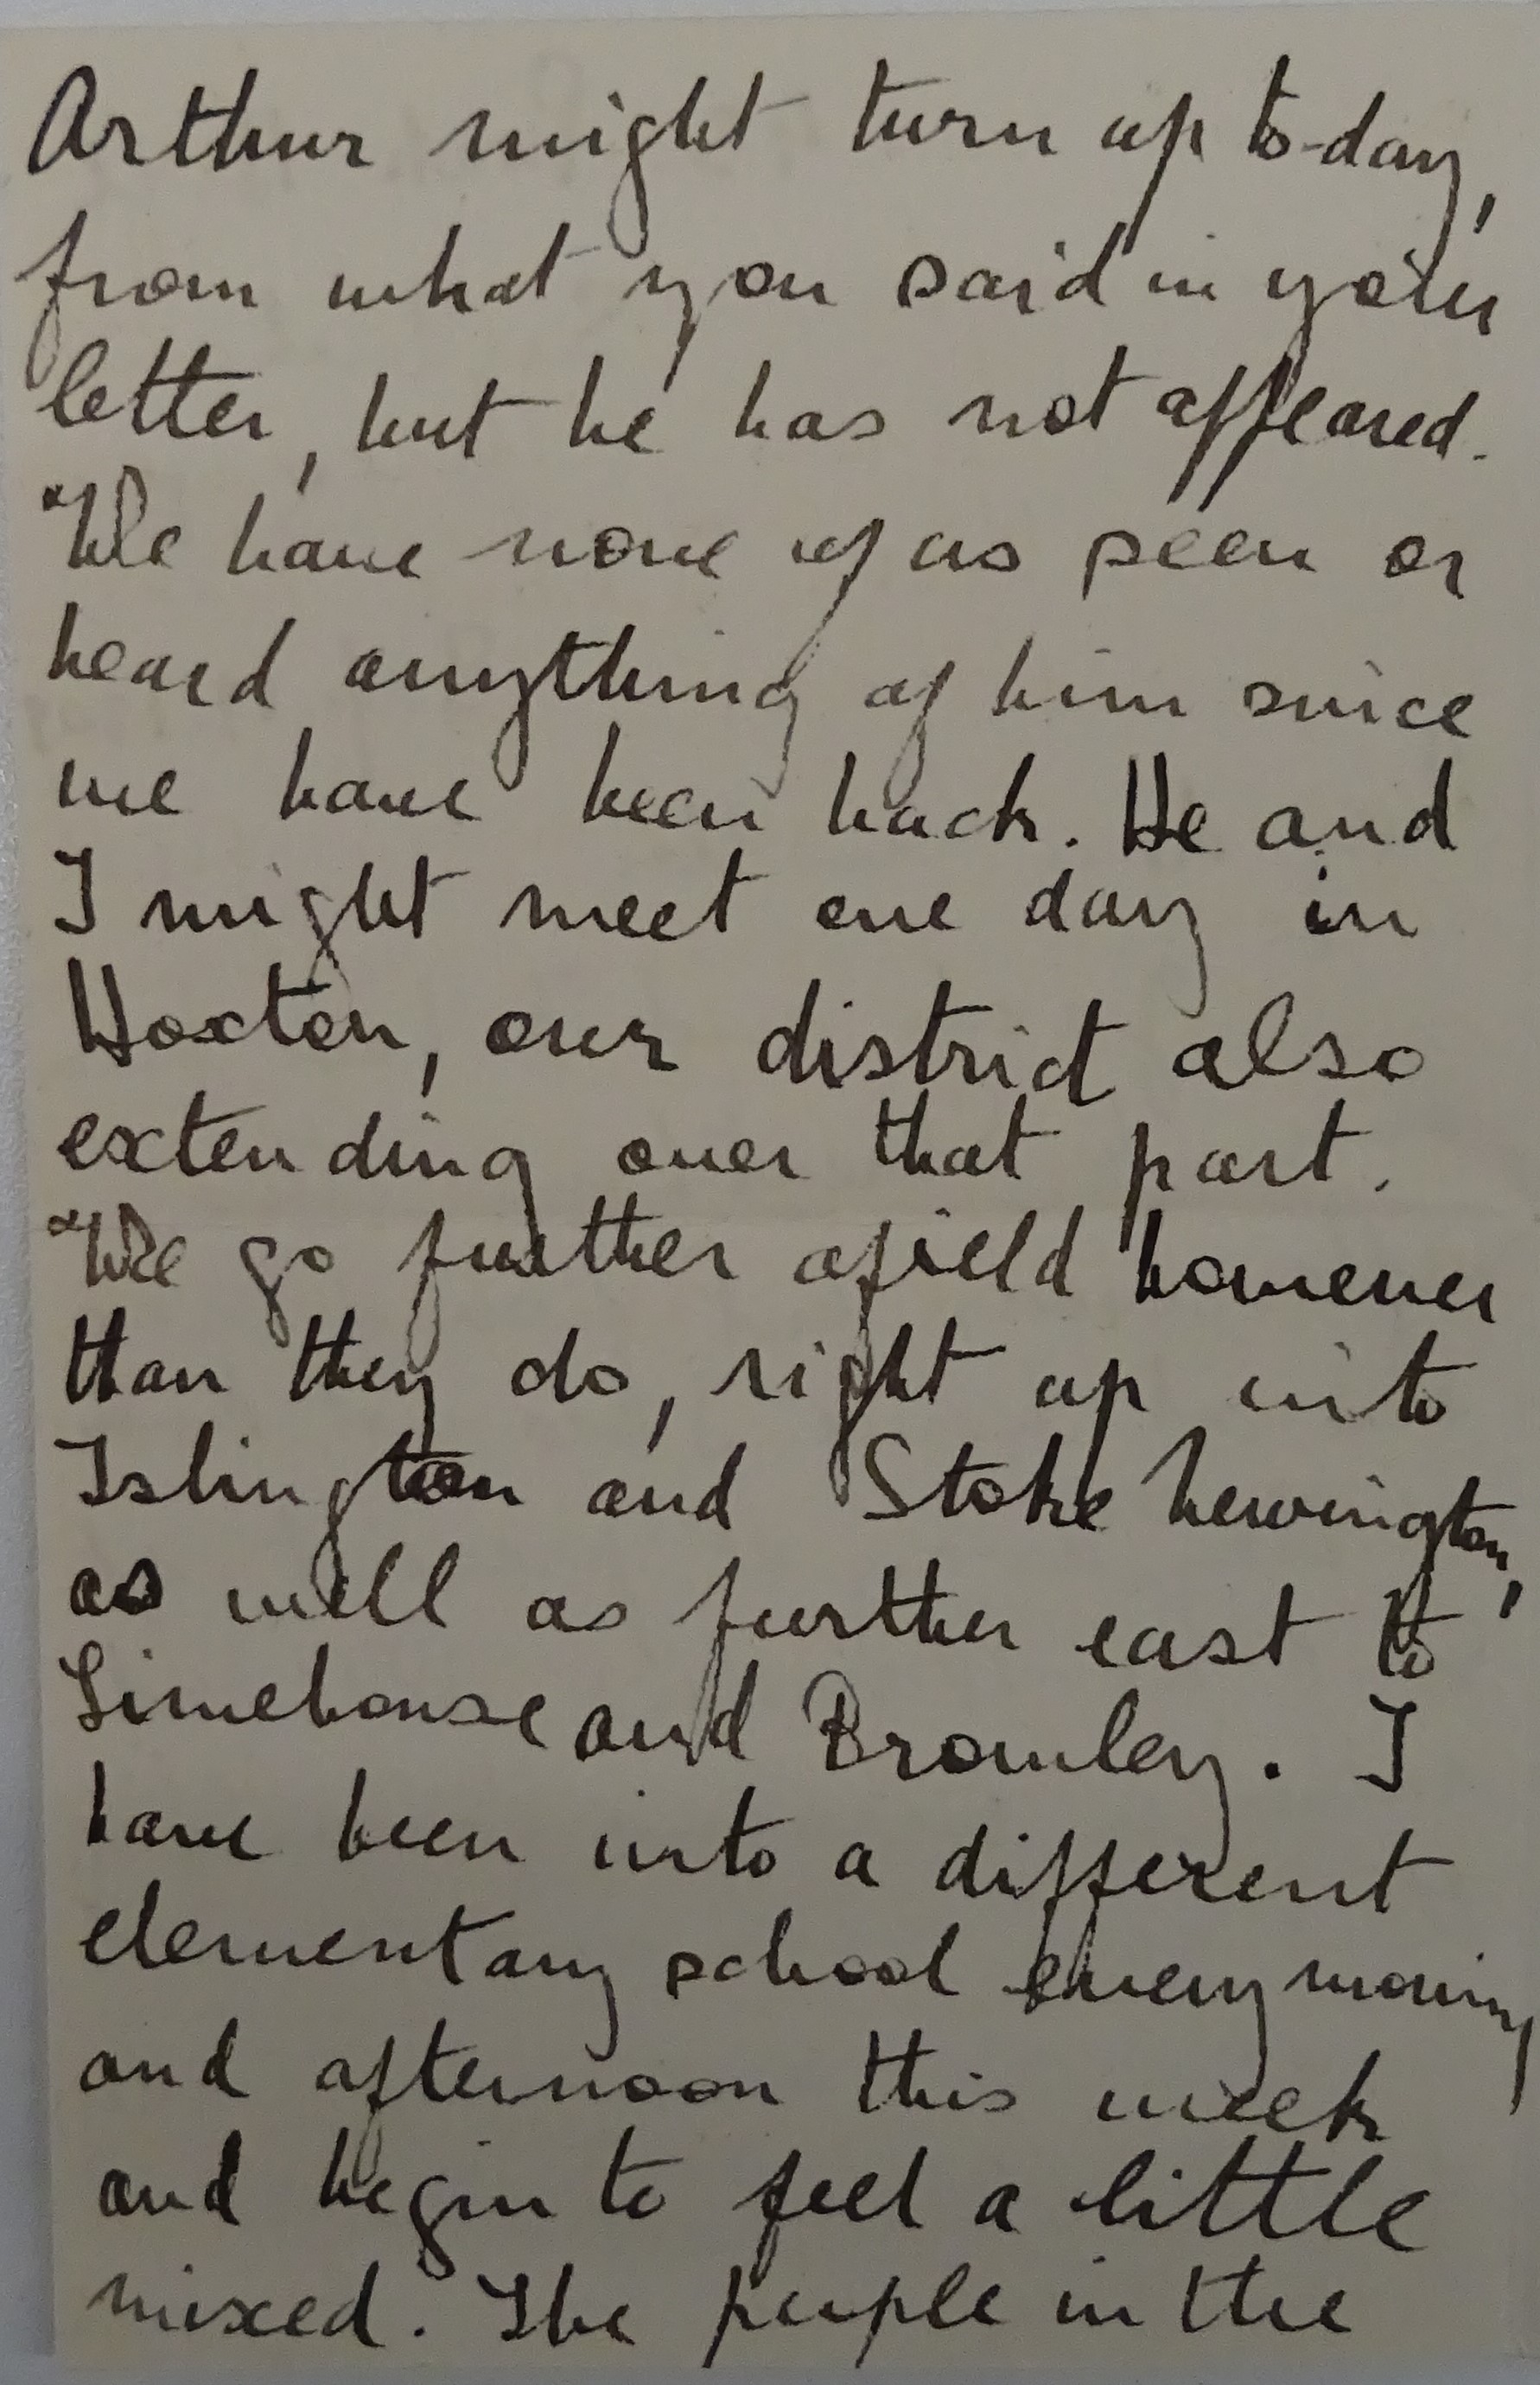 Arthur might turn up to-day,
from what you said in your
letter, but he has not appeared.
We have none of us seen or
heard anything of him since
we have been back. He and
I might meet one day in
Hoxton, our district also
extending over that part.
We go further afield however
than they do, right up into
Islington and Stoke Newington,
as well as further east to
Limehouse and Bromley. I
have been into a different
elementary school every morning
and afternoon this week
and begin to feel a little
mixed. The people in the